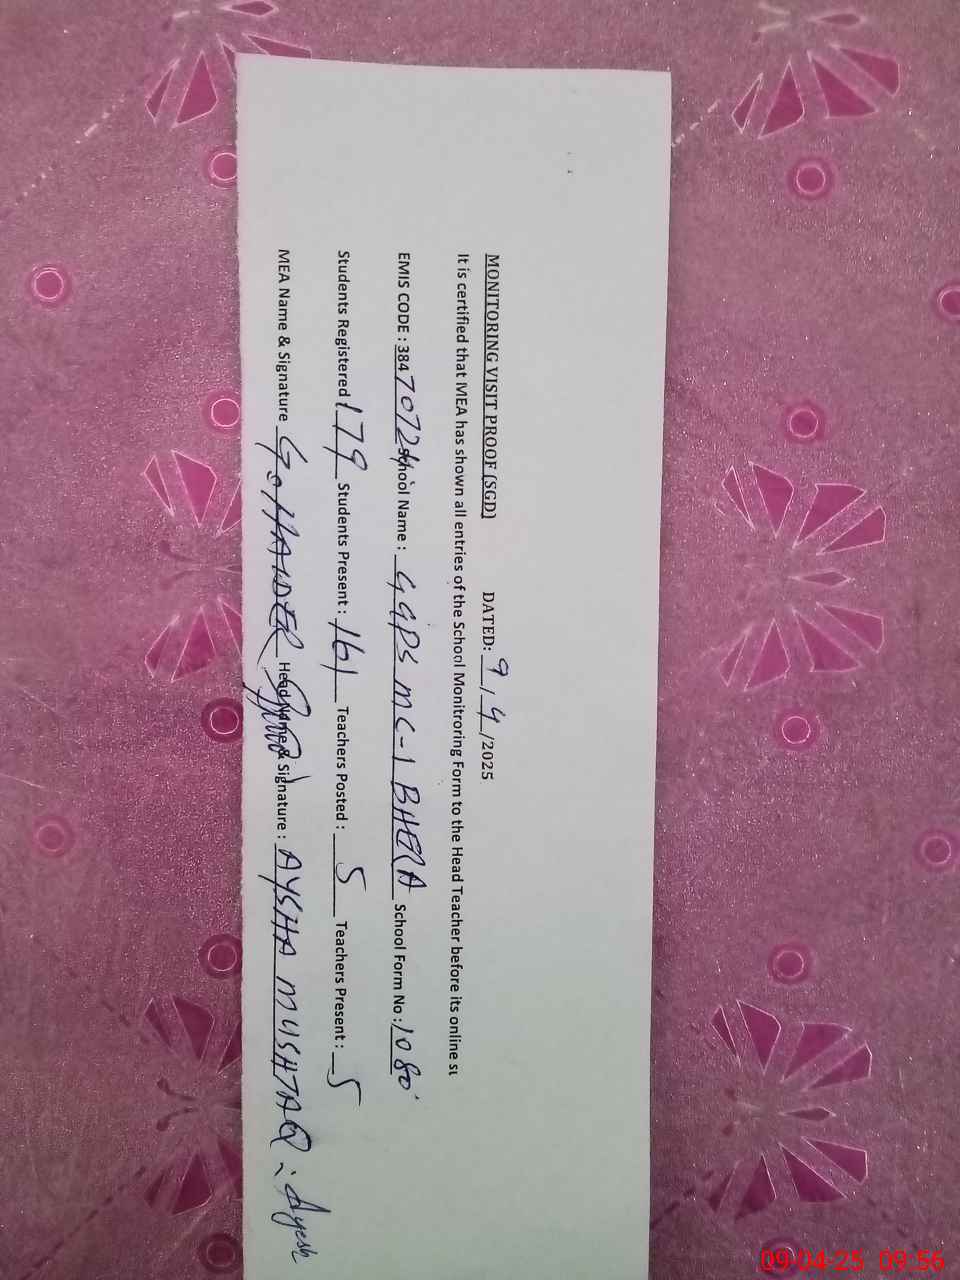 MONITORING VISIT PROOF (SGD) DATED: 9/4/2025
It is certified that MEA has shown all entries of the School Monitroring Form to the Head Teacher before its online su
EMIS CODE : 38470724 School Name : GGPS MC-1 BHERA School Form No : 1080
Students Registered 179 Students Present : 161 Teachers Posted : 5 Teachers Present : 5
MEA Name & Signature G. HAIDER Head Name & Signature : AYSHA MUSHTAQ : Ayesh
09-04-25 09:56